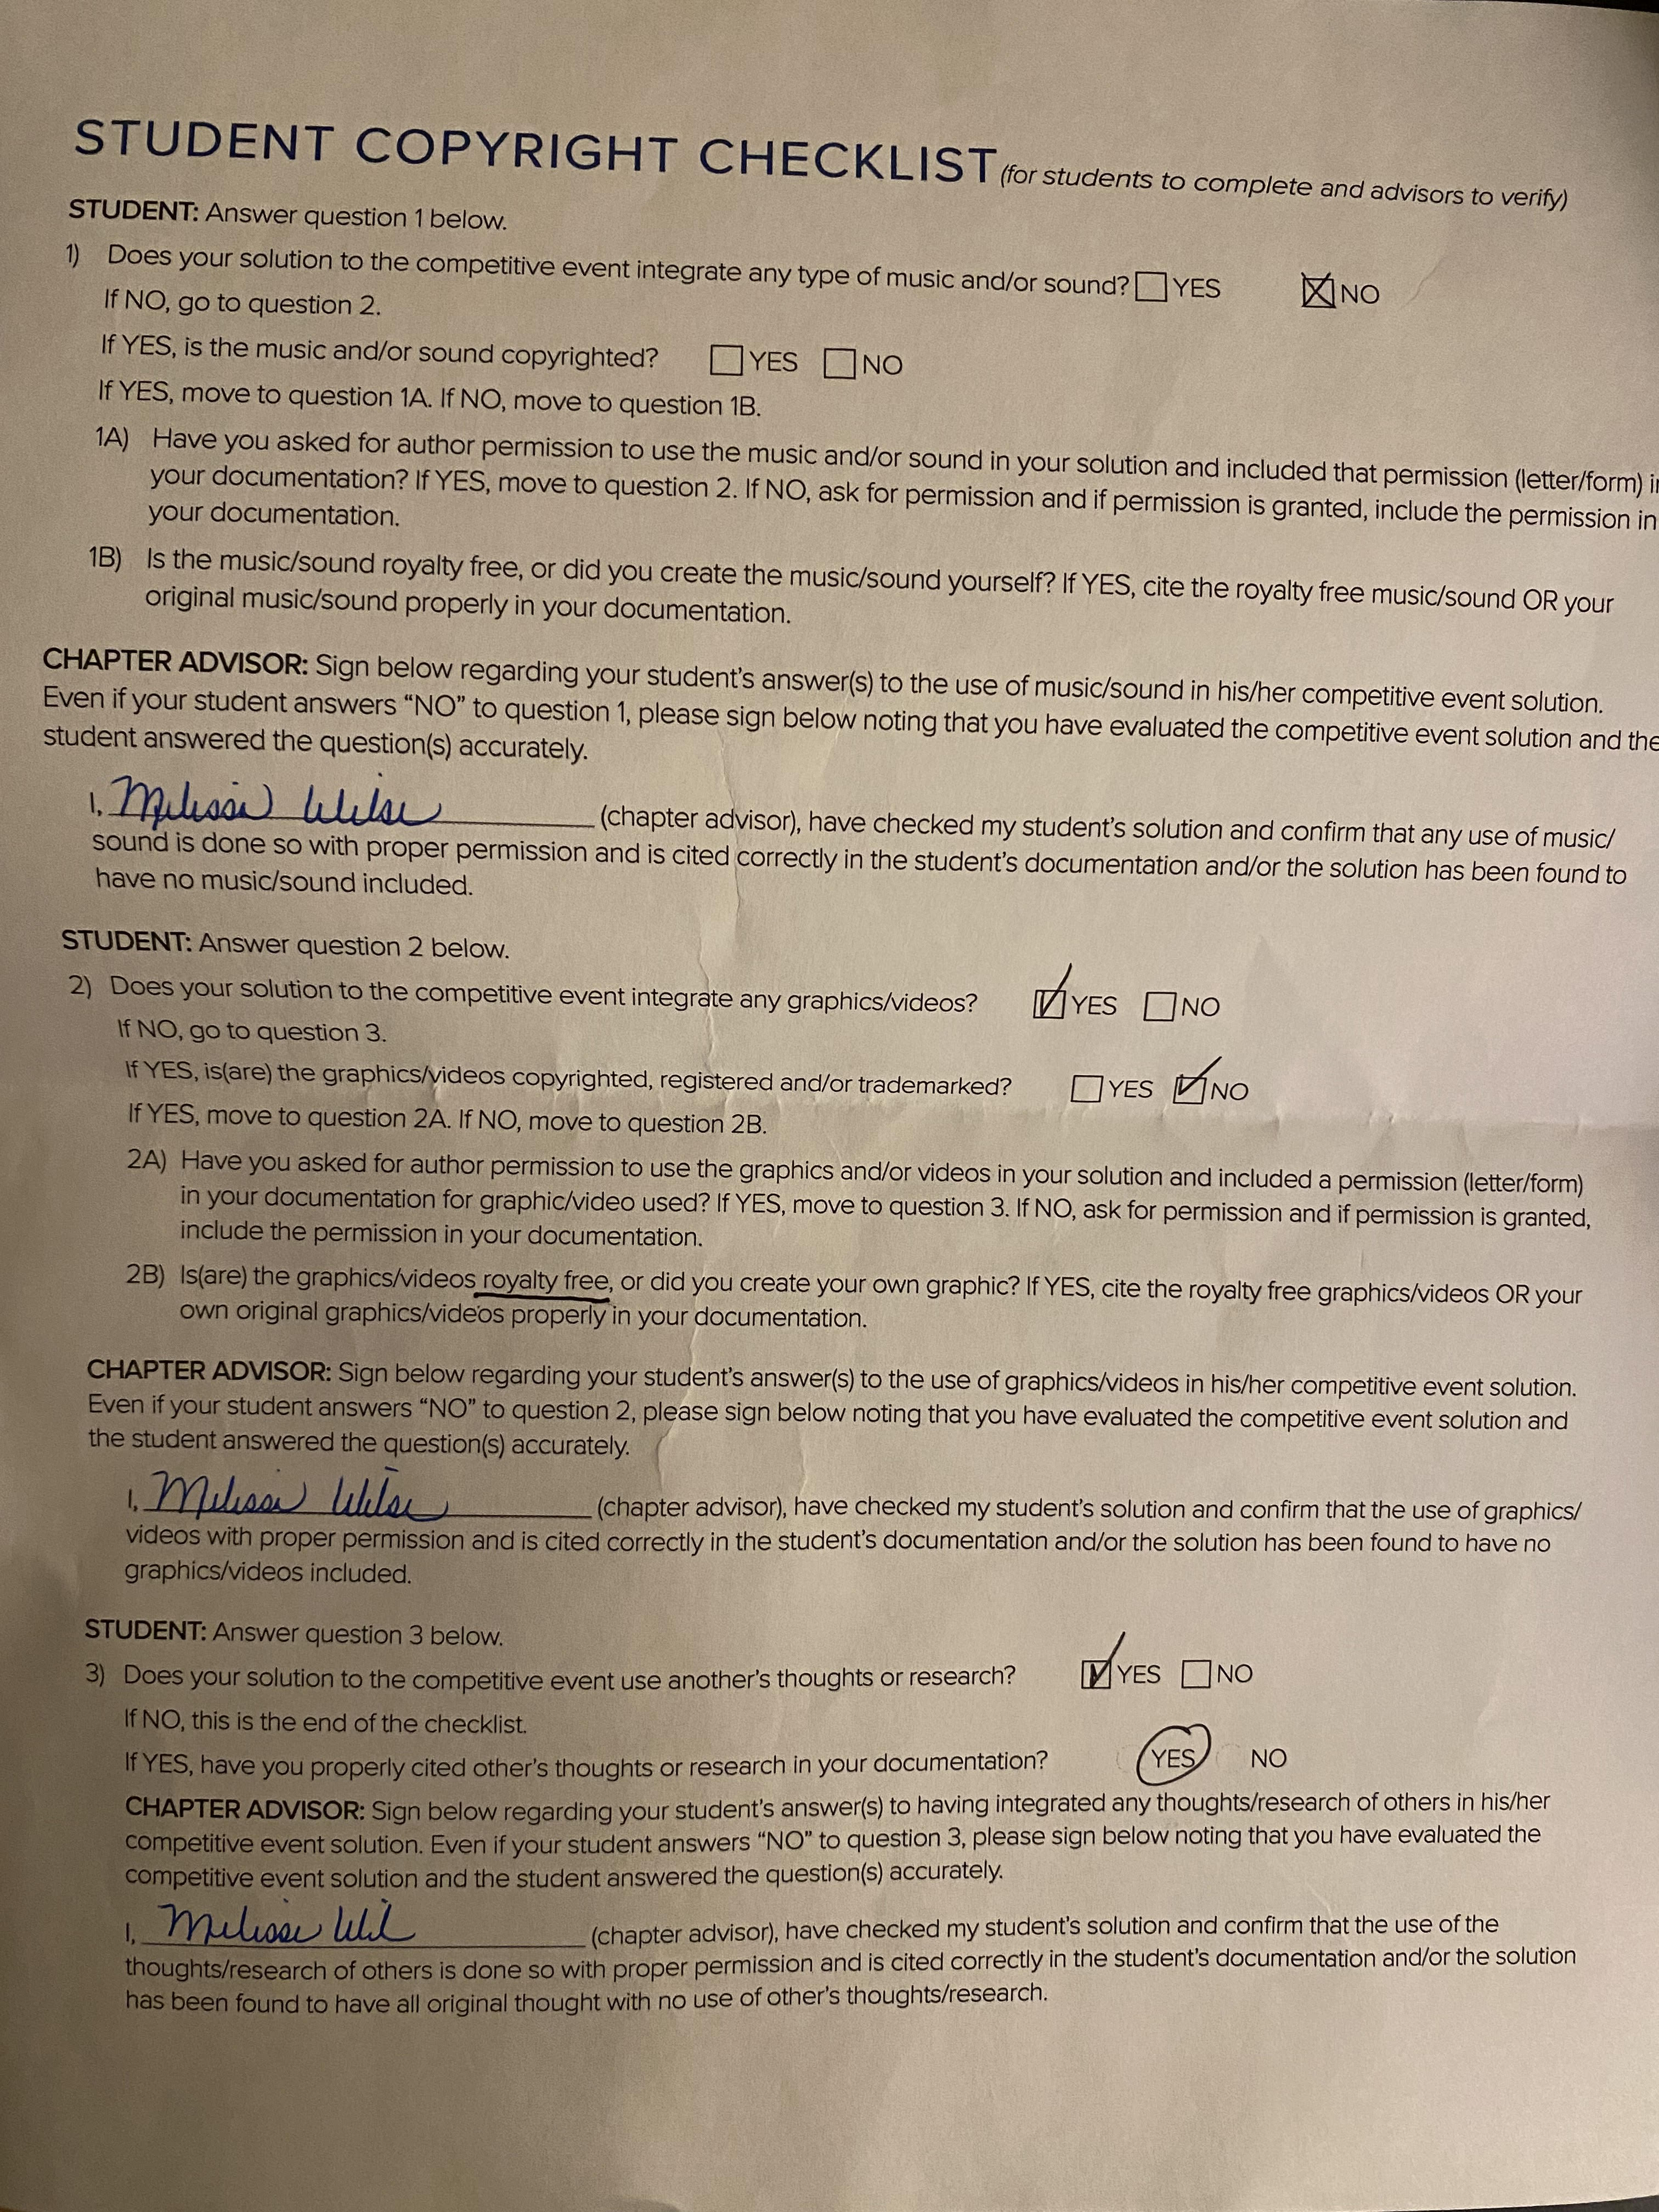 STUDENT COPYRIGHT CHECKLIST (for students to complete and advisors to verify)
STUDENT: Answer question 1 below.
1) Does your solution to the competitive event integrate any type of music and/or sound? YES NO
If NO, go to question 2.
If YES, is the music and/or sound copyrighted? YES NO
If YES, move to question 1A. If NO, move to question 1B.
1A) Have you asked for author permission to use the music and/or sound in your solution and included that permission (letter/form)
your documentation? If YES, move to question 2. If NO, ask for permission and if permission is granted, include the permission in
your documentation.
1B) Is the music/sound royalty free, or did you create the music/sound yourself? If YES, cite the royalty free music/sound OR your
original music/sound properly in your documentation.
CHAPTER ADVISOR: Sign below regarding your student's answer(s) to the use of music/sound in his/her competitive event solution.
Even if your student answers "NO" to question 1, please sign below noting that you have evaluated the competitive event solution and the
student answered the question(s) accurately.
I, Melissa (chapter advisor), have checked my student's solution and confirm that any use of music/
sound is done so with proper permission and is cited correctly in the student's documentation and/or the solution has been found to
have no music/sound included.
STUDENT: Answer question 2 below.
2) Does your solution to the competitive event integrate any graphics/videos? YES NO
If NO, go to question 3.
If YES, is(are) the graphics/videos copyrighted, registered and/or trademarked? YES NO
If YES, move to question 2A. If NO, move to question 2B.
2A) Have you asked for author permission to use the graphics and/or videos in your solution and included a permission (letter/form)
in your documentation for graphic/video used? If YES, move to question 3. If NO, ask for permission and if permission is granted,
include the permission in your documentation.
2B) Is(are) the graphics/videos royalty free, or did you create your own graphic? If YES, cite the royalty free graphics/videos OR your
own original graphics/videos properly in your documentation.
CHAPTER ADVISOR: Sign below regarding your student's answer(s) to the use of graphics/videos in his/her competitive event solution.
Even if your student answers "NO" to question 2, please sign below noting that you have evaluated the competitive event solution and
the student answered the question(s) accurately.
I, Melissa (chapter advisor), have checked my student's solution and confirm that the use of graphics/
videos with proper permission and is cited correctly in the student's documentation and/or the solution has been found to have no
graphics/videos included.
STUDENT: Answer question 3 below.
3) Does your solution to the competitive event use another's thoughts or research? YES NO
If NO, this is the end of the checklist.
If YES, have you properly cited other's thoughts or research in your documentation? YES NO
CHAPTER ADVISOR: Sign below regarding your student's answer(s) to having integrated any thoughts/research of others in his/her
competitive event solution. Even if your student answers "NO" to question 3, please sign below noting that you have evaluated the
competitive event solution and the student answered the question(s) accurately.
I, Melissa (chapter advisor), have checked my student's solution and confirm that the use of the
thoughts/research of others is done so with proper permission and is cited correctly in the student's documentation and/or the solution
has been found to have all original thought with no use of other's thoughts/research.